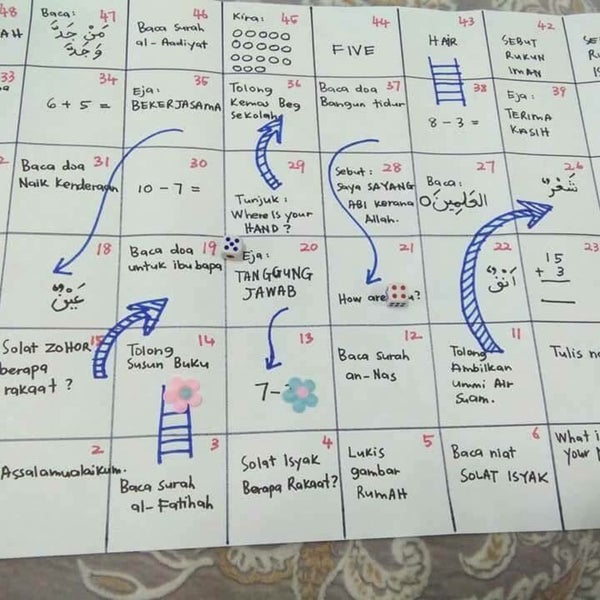 48
AH
Baca: 47
مَنْ جَدَّ
وَجَدَ
46
Baca surah
al-Aadiyat
Kira: 45
44
FIVE
43
HAIR
42
SEBUT
RUKUN
IMAN
33
34
6 + 5 =
35
Eja:
BEKERJASAMA
Tolong 36
Kemas Beg
sekolah
Baca doa 37
Bangun tidur
38
8 - 3 =
Eja: 39
TERIMA
KASIH
Baca doa 31
Naik Kenderaan
30
10 - 7 =
29
Tunjuk:
Where is your
HAND?
Sebut: 28
Saya SAYANG
ABI kerana
Allah.
27
Baca:
26
شَعْرٌ
18
عَيْنٌ
Baca doa 19
untuk ibu bapa
20
Eja:
TANGGUNG
JAWAB
21
How are
?
22
أَنْفٌ
23
15
+ 3
Solat ZOHOR 15
berapa
rakaat?
14
Tolong
Susun Buku
13
7-
12
Baca surah
an-Nas
11
Tolong
Ambilkan
Ummi Air
Suam.
Tulis
2
Assalamualaikum.
3
Baca surah
al-Fatihah
4
Solat Isyak
Berapa Rakaat?
5
Lukis
gambar
RUMAH
6
Baca niat
SOLAT ISYAK
What i
your